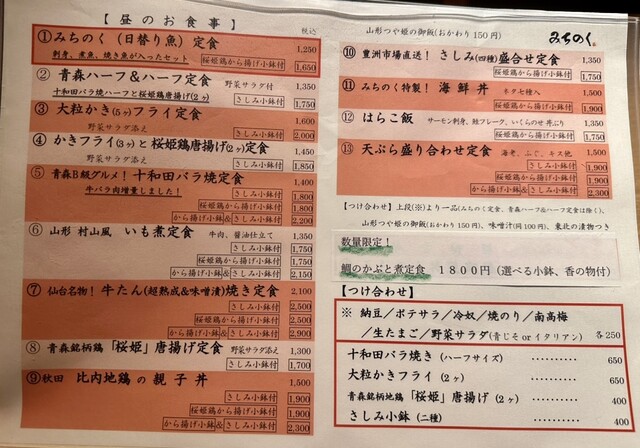 【 昼のお食事 】
税込
① みちのく (日替り魚) 定食 1,250
刺身、煮魚、焼き魚が入ったセット 桜姫鶏から揚げ小鉢付 1,650
② 青森ハーフ＆ハーフ定食 野菜サラダ付 1,350
十和田バラ焼ハーフと桜姫鶏唐揚げ(2ヶ) さしみ小鉢付 1,750
③ 大粒かき(5ヶ)フライ定食 1,600
野菜サラダ添え さしみ小鉢付 2,000
④ かきフライ(3ヶ)と桜姫鶏唐揚げ(2ヶ)定食 1,450
野菜サラダ添え さしみ小鉢付 1,850
⑤ 青森B級グルメ！十和田バラ焼定食 1,400
牛バラ肉増量しました！ さしみ小鉢付 1,800
桜姫鶏から揚げ小鉢付 1,800
から揚げ小鉢&さしみ小鉢付 2,200
⑥ 山形 村山風 いも煮定食 牛肉、醤油仕立て 1,350
さしみ小鉢付 1,750
桜姫鶏から揚げ小鉢付 1,750
から揚げ小鉢&さしみ小鉢付 2,150
⑦ 仙台名物！牛たん(超熟成&味噌漬)焼き定食 2,100
さしみ小鉢付 2,500
桜姫鶏から揚げ小鉢付 2,500
から揚げ小鉢&さしみ小鉢付 2,900
⑧ 青森銘柄鶏「桜姫」唐揚げ定食 野菜サラダ添え 1,300
さしみ小鉢付 1,700
⑨秋田 比内地鶏の親子丼 1,500
さしみ小鉢付 1,900
桜姫鶏から揚げ小鉢付 1,900
から揚げ小鉢&さしみ小鉢付 2,300
山形つや姫の御飯(おかわり150円) みちのく
⑩ 豊洲市場直送！さしみ(四種)盛合せ定食 1,350
桜姫鶏から揚げ小鉢付 1,750
⑪ みちのく特製！海鮮丼 ネタ七種入 1,500
桜姫鶏から揚げ小鉢付 1,900
⑫ はらこ飯 サーモン刺身、鮭フレーク、いくらのせ丼ぶり 1,350
桜姫鶏から揚げ小鉢付 1,750
⑬ 天ぷら盛り合わせ定食 海老、ふぐ、キス他 1,500
さしみ小鉢付 1,900
桜姫鶏から揚げ小鉢付 1,900
から揚げ小鉢&さしみ小鉢付 2,300
【つけ合わせ】上段(※)より一品(みちのく定食、青森ハーフ&ハーフ定食は除く)、
山形つや姫の御飯(おかわり150円)、味噌汁(同100円)、東北の漬物つき
数量限定！
鯛のかぶと煮定食 1800円 (選べる小鉢、香の物付)
【つけ合わせ】
※ 納豆／ポテサラ／冷奴／焼のり／南高梅
／生たまご／野菜サラダ(青じそ or イタリアン) 各250
十和田バラ焼き (ハーフサイズ) ………… 650
大粒かきフライ (2ヶ) ………… 650
青森銘柄地鶏「桜姫」唐揚げ (2ヶ) ………… 400
さしみ小鉢 (二種) ………… 400